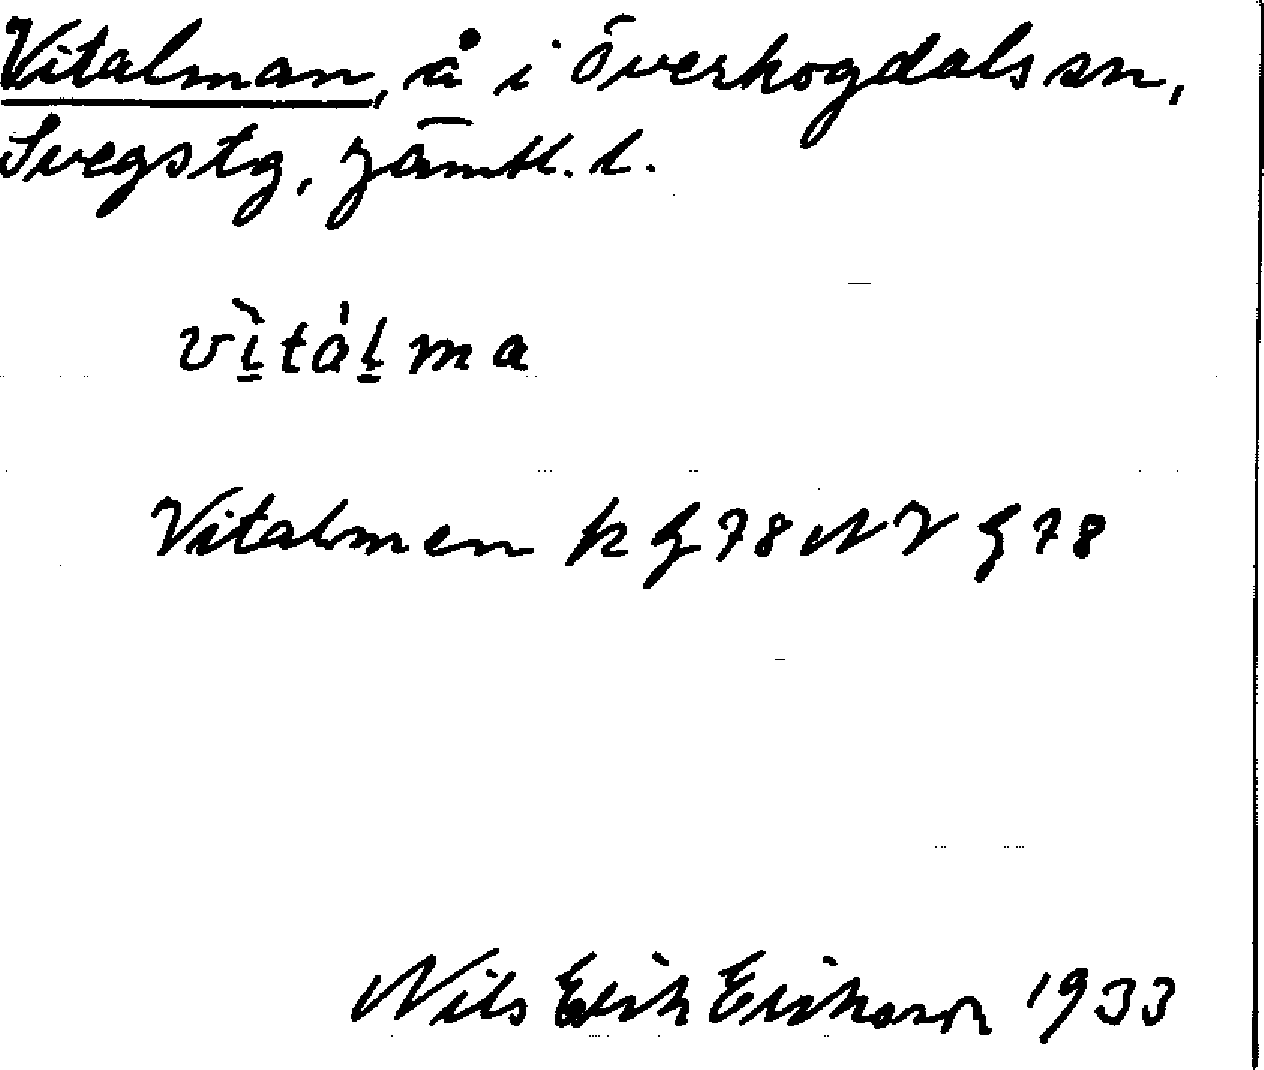 Vitalman, å i Överhogdals sn,
Svegs tg, Jämtl. l.
vìtál̠ma
Vitalmen k g 78 NV G 78
Nils Erik Erikson 1933